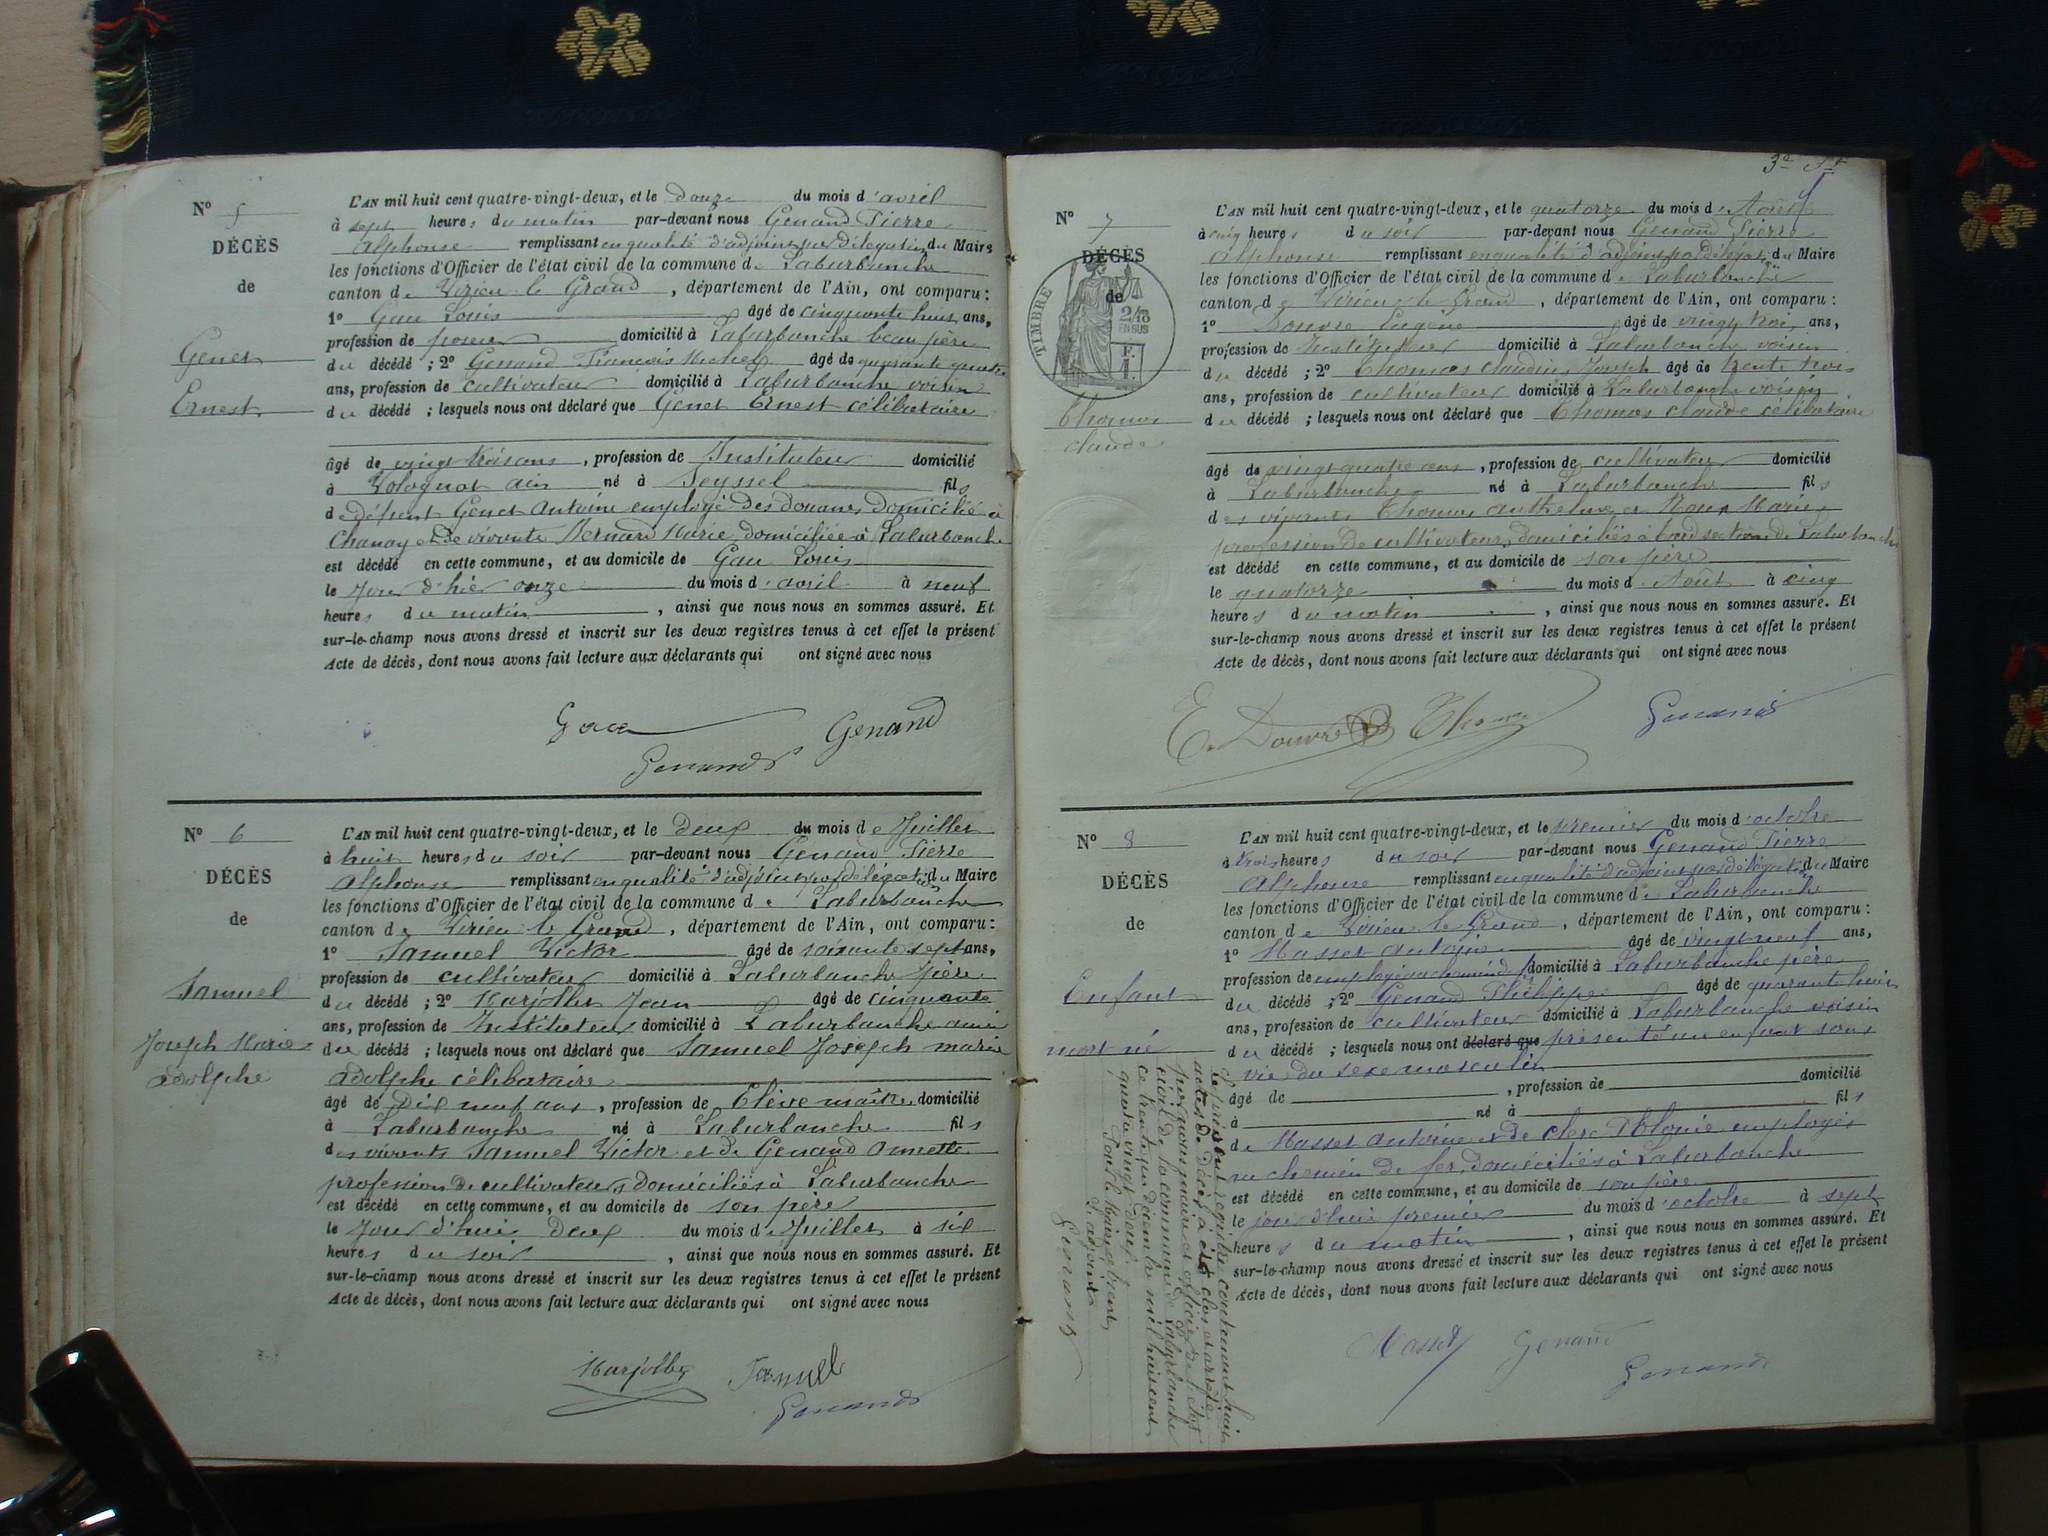 N° 5
DÉCÈS
de
Genet
Ernest
L'AN mil huit cent quatre-vingt-deux, et le douze du mois d'avril
à sept heures du matin par-devant nous Genand Pierre
Alphonse remplissant en qualité d'adjoint par délégation du Maire
les fonctions d'Officier de l'état civil de la commune de Laburbanche
canton de Virieu-le-Grand, département de l'Ain, ont comparu :
1° Gau Louis âgé de cinquante huit ans,
profession de poseur domicilié à Laburbanche beau père
du décédé ; 2° Genand François Michel âgé de quarante quatre
ans, profession de cultivateur domicilié à Laburbanche voisin
du décédé ; lesquels nous ont déclaré que Genet Ernest célibataire
âgé de vingt trois ans, profession de Instituteur domicilié
à Volognat ain né à Seyssel fils
de défunt Genet Antoine employé des douanes domicilié à
Chanay et de vivante Bernard Marie domiciliée à Laburbanche
est décédé en cette commune, et au domicile de Gau Louis
le jour d'hier onze du mois d'avril à neuf
heures du matin, ainsi que nous nous en sommes assuré. Et
sur-le-champ nous avons dressé et inscrit sur les deux registres tenus à cet effet le présent
Acte de décès, dont nous avons fait lecture aux déclarants qui ont signé avec nous
Genand
Genand
N° 6
DÉCÈS
de
Samuel
Joseph Marie
adolphe
L'AN mil huit cent quatre-vingt-deux, et le deux du mois de Juillet
à huit heures du soir par-devant nous Genand Pierre
Alphonse remplissant en qualité d'adjoint par délégation du Maire
les fonctions d'Officier de l'état civil de la commune de Laburbanche
canton de Virieu le Grand, département de l'Ain, ont comparu :
1° Samuel Victor âgé de soixante sept ans,
profession de cultivateur domicilié à Laburbanche père
du décédé ; 2° Marjollet Jean âgé de cinquante
ans, profession de Instituteur domicilié à Laburbanche ami
du décédé ; lesquels nous ont déclaré que Samuel Joseph marie
adolphe célibataire
âgé de dix neuf ans, profession de Elève maître domicilié
à Laburbanche né à Laburbanche fils
des vivants Samuel Victor et de Genand Annette
profession de cultivateurs domiciliés à Laburbanche
est décédé en cette commune, et au domicile de son père
le Jour d'hui deux du mois de Juillet à six
heures du soir, ainsi que nous nous en sommes assuré. Et
sur-le-champ nous avons dressé et inscrit sur les deux registres tenus à cet effet le présent
Acte de décès, dont nous avons fait lecture aux déclarants qui ont signé avec nous
Marjollet Samuel
Genand
N° 7
DÉCÈS
de
TIMBRE
2/10
EN SUS
F.
Thomas
claude
L'AN mil huit cent quatre-vingt-deux, et le quatorze du mois d'Août
à cinq heures du soir par-devant nous Genand Pierre
Alphonse remplissant en qualité d'adjoint par délégation du Maire
les fonctions d'Officier de l'état civil de la commune de Laburbanche
canton de Virieu-le-Grand, département de l'Ain, ont comparu :
1° Douvre Eugène âgé de vingt trois ans,
profession de Instituteur domicilié à Laburbanche voisin
du décédé ; 2° Thomas Claudius Joseph âgé de trente trois
ans, profession de cultivateur domicilié à Laburbanche voisin
du décédé ; lesquels nous ont déclaré que Thomas claude célibataire
âgé de vingt quatre ans, profession de cultivateur domicilié
à Laburbanche né à Laburbanche fils
des vivants Thomas Anthelme et Roux Marie
profession de cultivateurs domiciliés à section de Laburbanche
est décédé en cette commune, et au domicile de son père
le quatorze du mois d'Août à cinq
heures du matin, ainsi que nous nous en sommes assuré. Et
sur-le-champ nous avons dressé et inscrit sur les deux registres tenus à cet effet le présent
Acte de décès, dont nous avons fait lecture aux déclarants qui ont signé avec nous
E. Douvre Thomas Genand
N° 8
DÉCÈS
de
Enfant
mort né
L'AN mil huit cent quatre-vingt-deux, et le premier du mois d'octobre
à trois heures du soir par-devant nous Genand Pierre
Alphonse remplissant en qualité d'adjoint par délégation du Maire
les fonctions d'Officier de l'état civil de la commune de Laburbanche
canton de Virieu-le-Grand, département de l'Ain, ont comparu :
1° Masset Antoine âgé de vingt neuf ans,
profession de employé au chemin de f. domicilié à Laburbanche père
du décédé ; 2° Genand Philippe âgé de quarante huit
ans, profession de cultivateur domicilié à Laburbanche voisin
du décédé ; lesquels nous ont déclaré que présenté un enfant sans
vie du sexe masculin
âgé de , profession de domicilié
à né à fils
de Masset Antoine et de clerc employés
au chemin de fer domiciliés à Laburbanche
est décédé en cette commune, et au domicile de son père
le jour d'hui premier du mois d'octobre à sept
heures du matin, ainsi que nous nous en sommes assuré. Et
sur-le-champ nous avons dressé et inscrit sur les deux registres tenus à cet effet le présent
Acte de décès, dont nous avons fait lecture aux déclarants qui ont signé avec nous
Masset Genand
Genand
Le présent registre contenant huit
actes de décès a été clos et arrêté
par nous maire et officier de l'état
civil de la commune de Laburbanche
ce trente un décembre mil huit cent
quatre vingt deux
L'adjoint
Genand